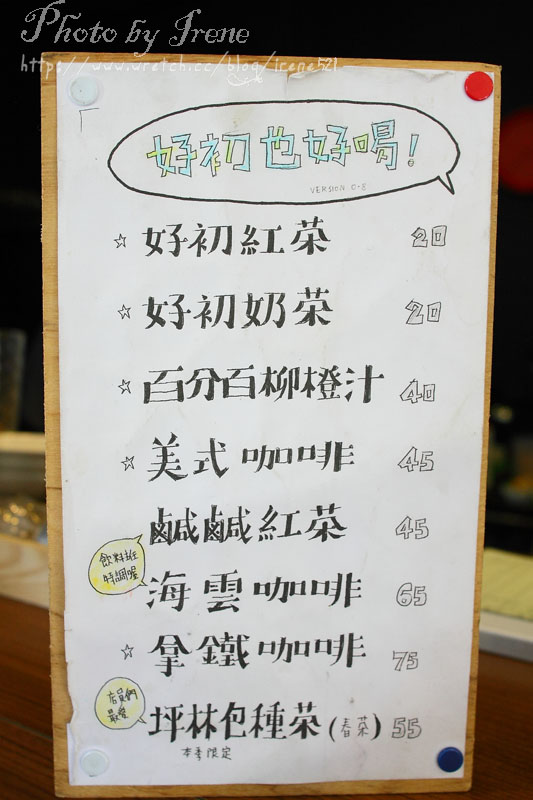 Photo by Irene
http://www.wretch.cc/blog/irene521
好初也好喝!
VERSION 0.8
☆ 好初紅茶 20
☆ 好初奶茶 20
☆ 百分百柳橙汁 40
☆ 美式咖啡 45
鹹鹹紅茶 45
飲料班
時調喔
海雲咖啡 65
☆ 拿鐵咖啡 75
店員們
最愛
坪林包種茶(春茶) 55
本季限定